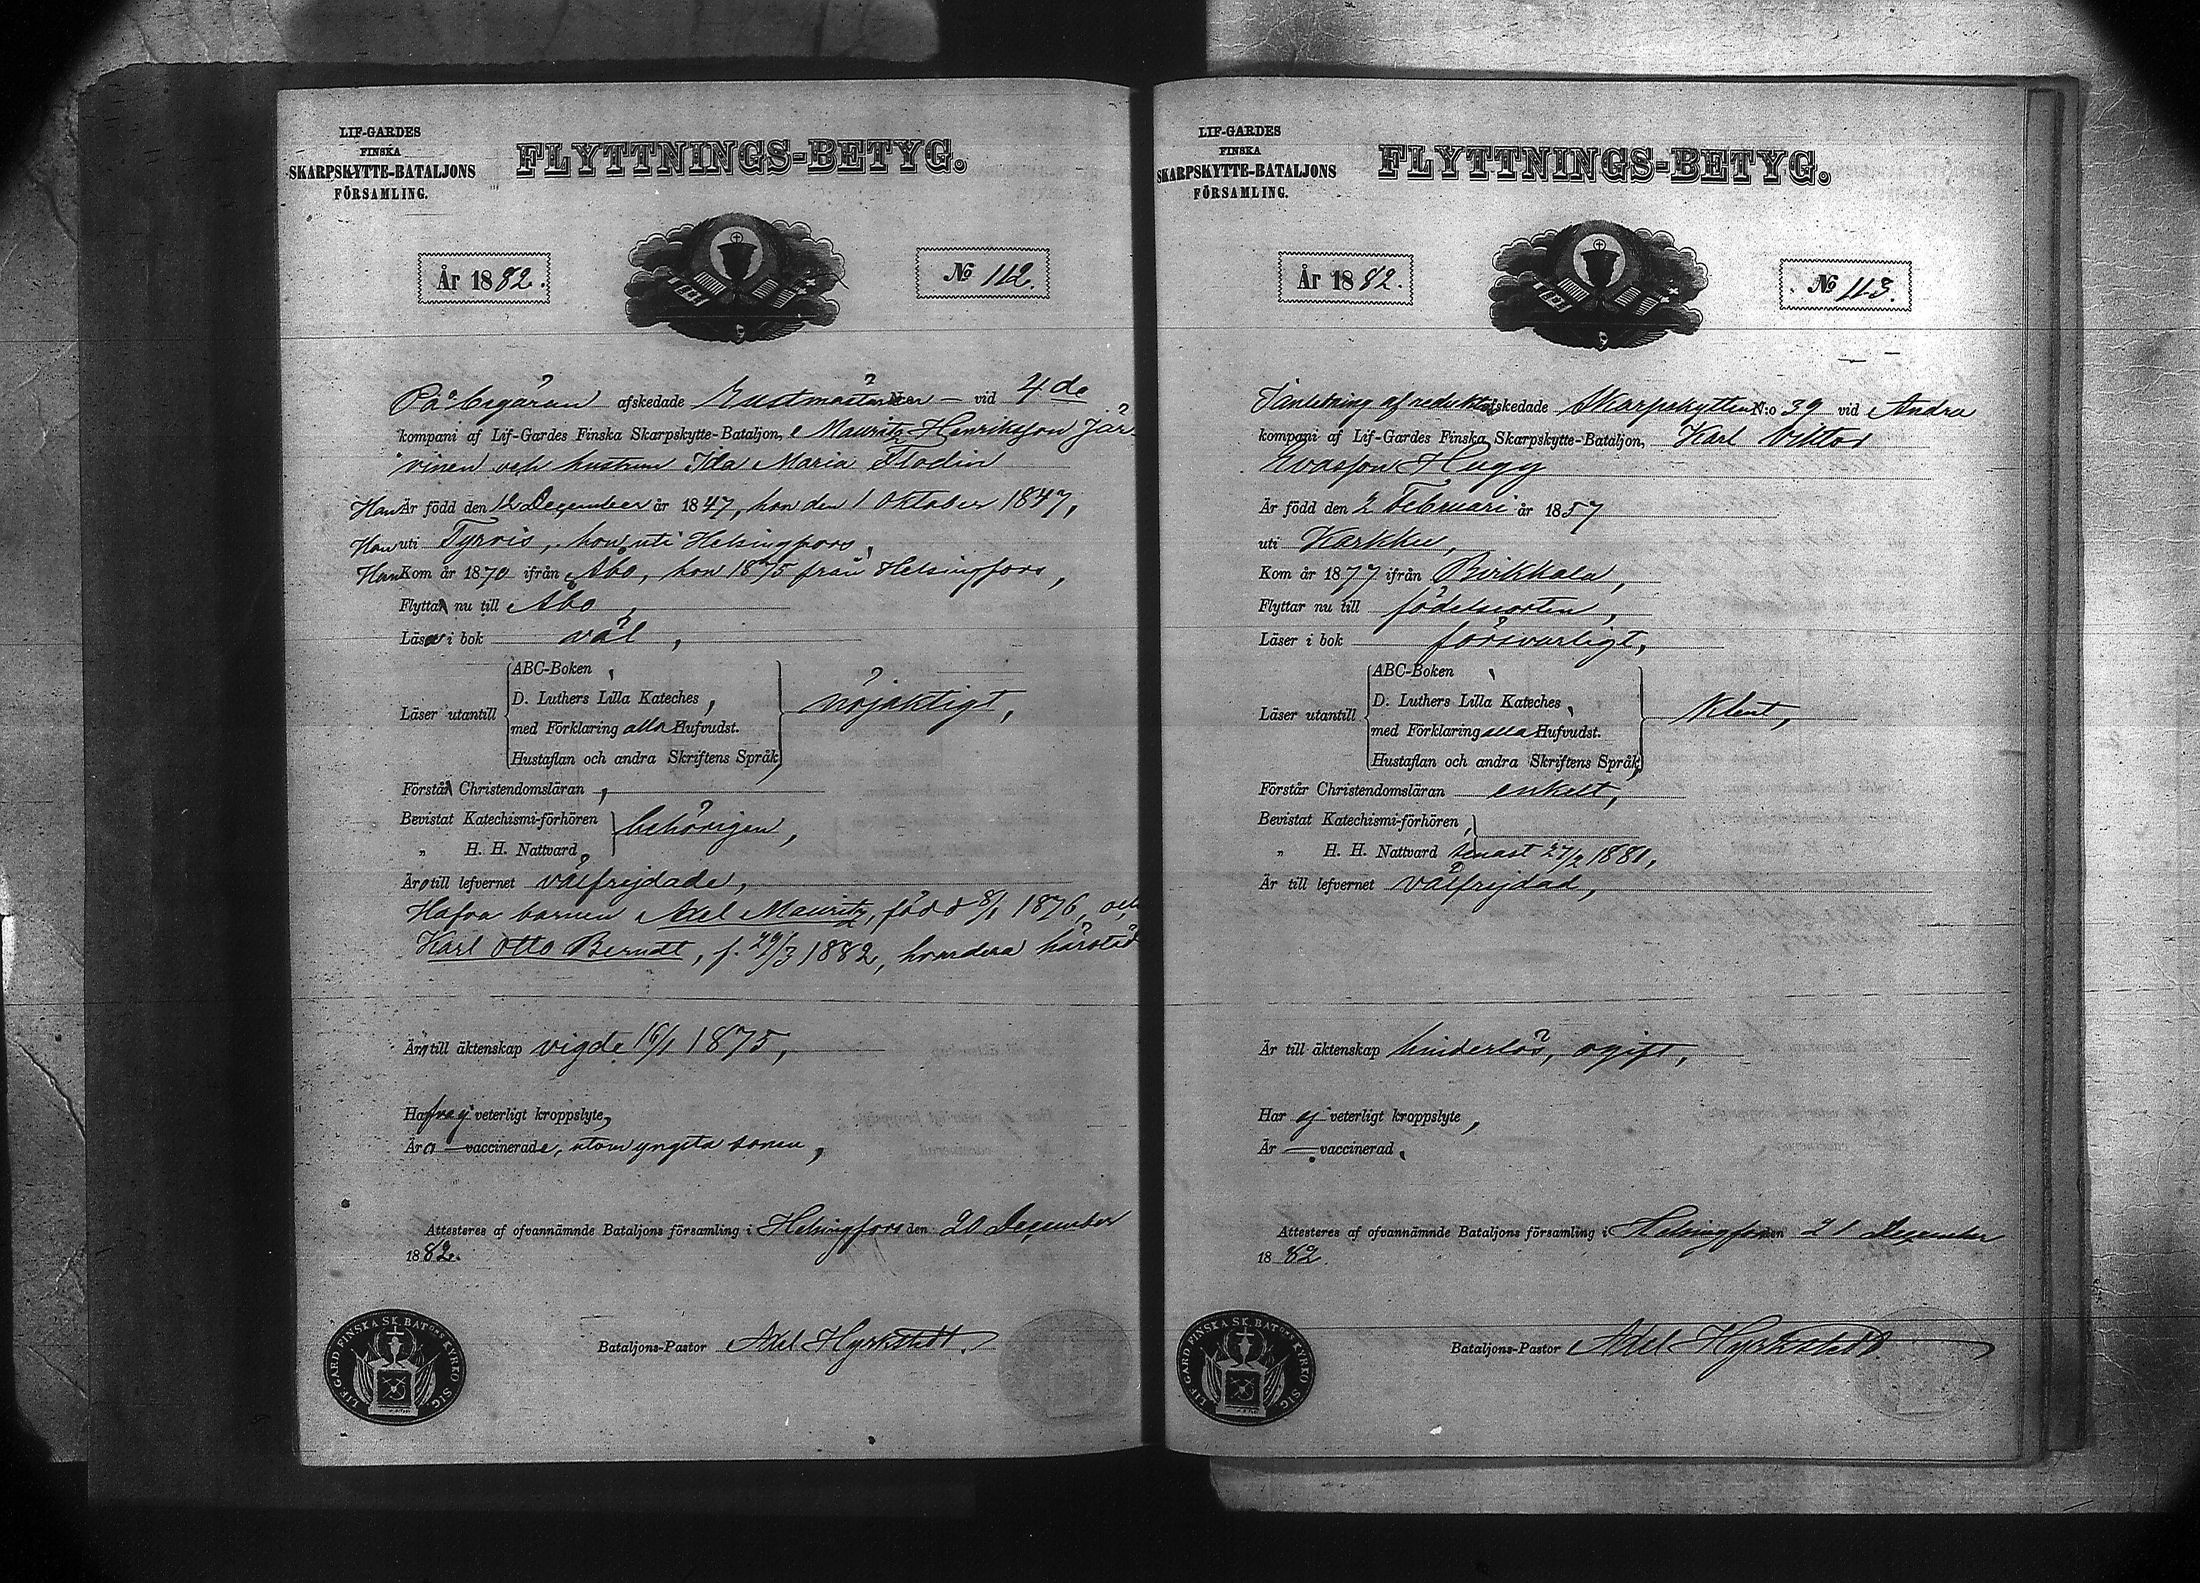 LIF-GARDES
FINSKA
SKARPSKYTTE-BATALJONS
FÖRSAMLING.
FLYTTNINGS-BETYG.
År 1882.
No 112.
På begäran afskedade Rustmästaren — vid 4de
kompani af Lif-Gardes Finska Skarpskytte-Bataljon, Mauritz Henriksson Jär-
vinen och hustrun Ida Maria Flodin
Han Är född den 12 December år 1847, hon den 1 Oktober 1847,
Han uti Tyrvis, hon uti Helsingfors,
Han Kom år 1870 ifrån Åbo, hon 1875 från Helsingfors,
Flytta nu till Åbo,
Läsa i bok väl,
ABC-Boken,
D. Luthers Lilla Kateches,
Läser utantill nöjaktigt,
med Förklaring alla Hufvudst.
Hustaflan och andra Skriftens Språk
Förstå Christendomsläran,
Bevistat Katechismi-förhören behörigen,
„ H. H. Nattvard,
Äro till lefvernet välfrejdade,
Hafva barnen Axel Mauritz, född 8/1 1876, och
Karl Otto Berndt, f. 29/3 1882, hvardera härstäd
Äro till äktenskap vigde 16/1 1875,
Hafva ej veterligt kroppslyte,
Äro — vaccinerade, utom yngsta sonen,
Attesteras af ofvannämnde Bataljons församling i Helsingfors den 20 December
1882.
Bataljons-Pastor Axel Hyrkstedt.
LIF. GARD. FINSKA SK. BATONS KYRKO SIG
LIF-GARDES
FINSKA
SKARPSKYTTE-BATALJONS
FÖRSAMLING.
FLYTTNINGS-BETYG.
År 1882.
No 113.
afskedade Skarpskytten N:o 39 vid Andra
kompani af Lif-Gardes Finska Skarpskytte-Bataljon, Karl Viktor
Hugg
Är född den 2 Februari år 1857
uti Karkku,
Kom år 1877 ifrån Birkkala,
Flyttar nu till födelseorten,
Läser i bok försvarligt,
ABC-Boken,
D. Luthers Lilla Kateches,
Läser utantill klent,
med Förklaring alla Hufvudst.
Hustaflan och andra Skriftens Språk,
Förstår Christendomsläran enkelt,
Bevistat Katechismi-förhören,
„ H. H. Nattvard senast 27/2 1881,
Är till lefvernet välfrejdad,
Är till äktenskap hinderlös, ogift,
Har ej veterligt kroppslyte,
Är — vaccinerad.
Attesteras af ofvannämnde Bataljons församling i Helsingfors den 21 December
1882.
Bataljons-Pastor Axel Hyrkstedt.
LIF. GARD. FINSKA SK. BATONS KYRKO SIG